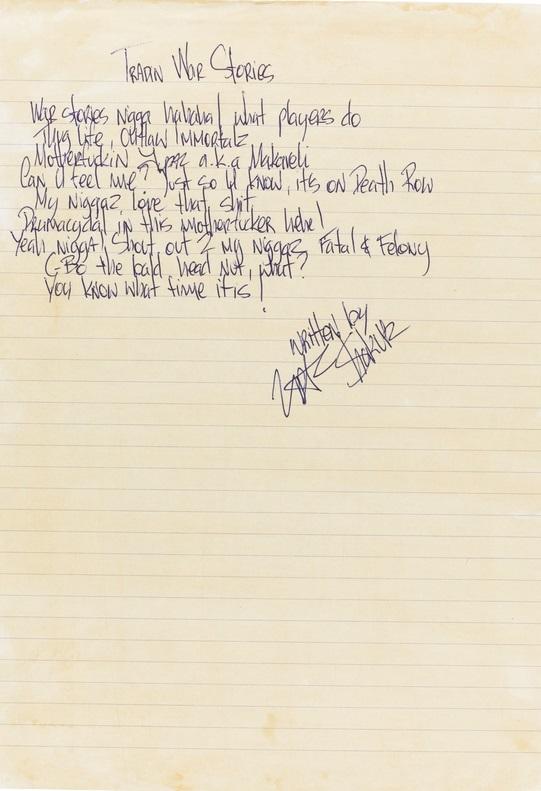 Tradin War Stories
War stories nigga hahaha! what players do
Thug Life, Outlaw Immortalz
Motherfuckin 2pac a.k.a Makaveli
Can U feel me? Just so U know, it's on Death Row
My Niggaz love that shit
Dramacydal in this motherfucker hehe!
Yeah nigga! Shout out 2 my niggaz Fatal & Felony
GBo the bald head Nut, what?
You know what time it is!
written by
Shakur